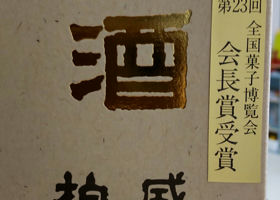 第23回
全国菓子博覧会
会長賞受賞
酒